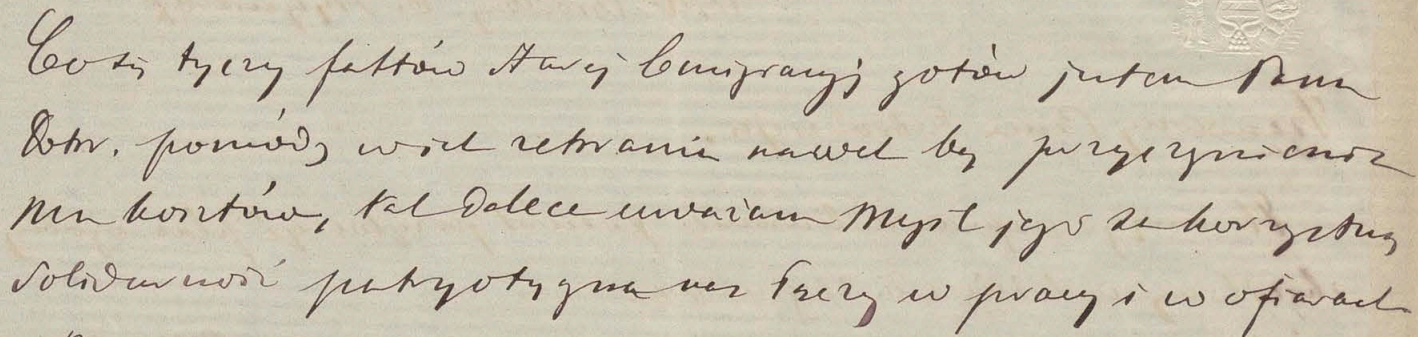 Co się tyczy faktów Starej Emigracyj gotów jestem Panu
Dobr. pomódz w ich zebraniu nawet bez przyczynienia
mu kosztów, tak dalece uważam myśl jego za korzystną
solidarność patryotyczna nas łączy w pracy i w ofiarach